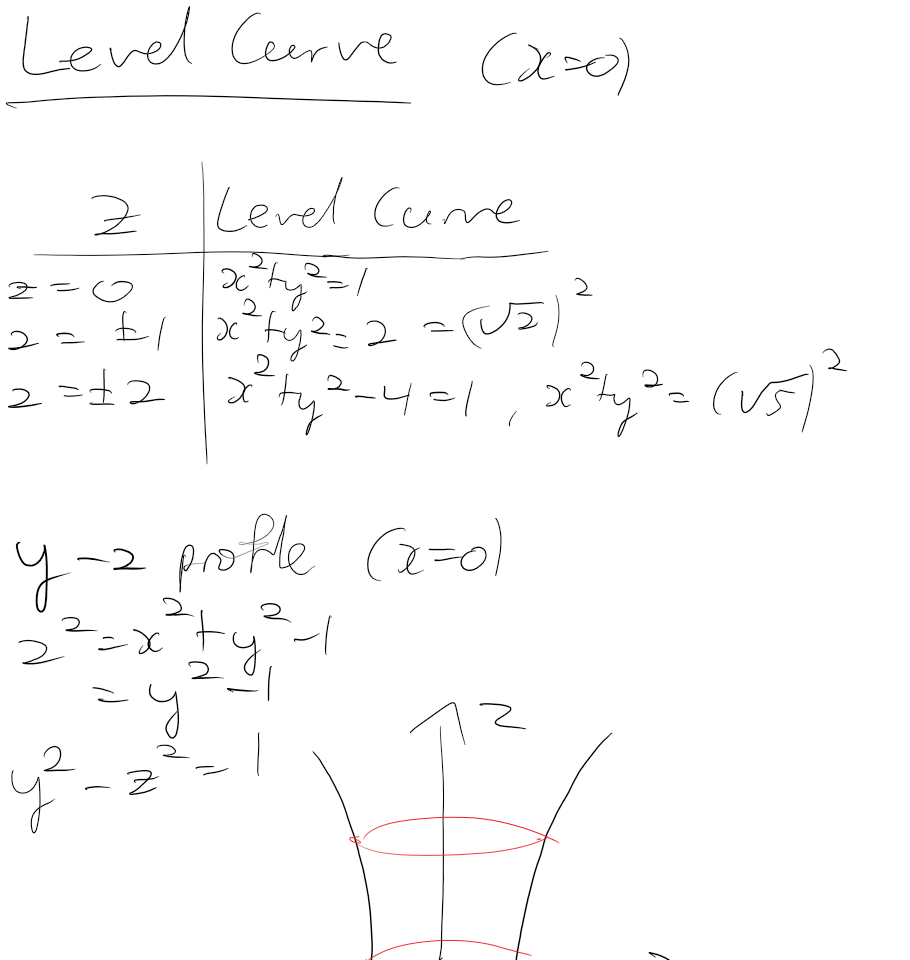 Level Curve (x=0)
z Level Curve
z = 0 x²+y²=1
z = ±1 x²+y²= 2 = (√2)²
z = ±2 x²+y²-4=1, x²+y²= (√5)²
y-z profile (x=0)
z²=x²+y²-1
= y²-1
y²-z²=1
z